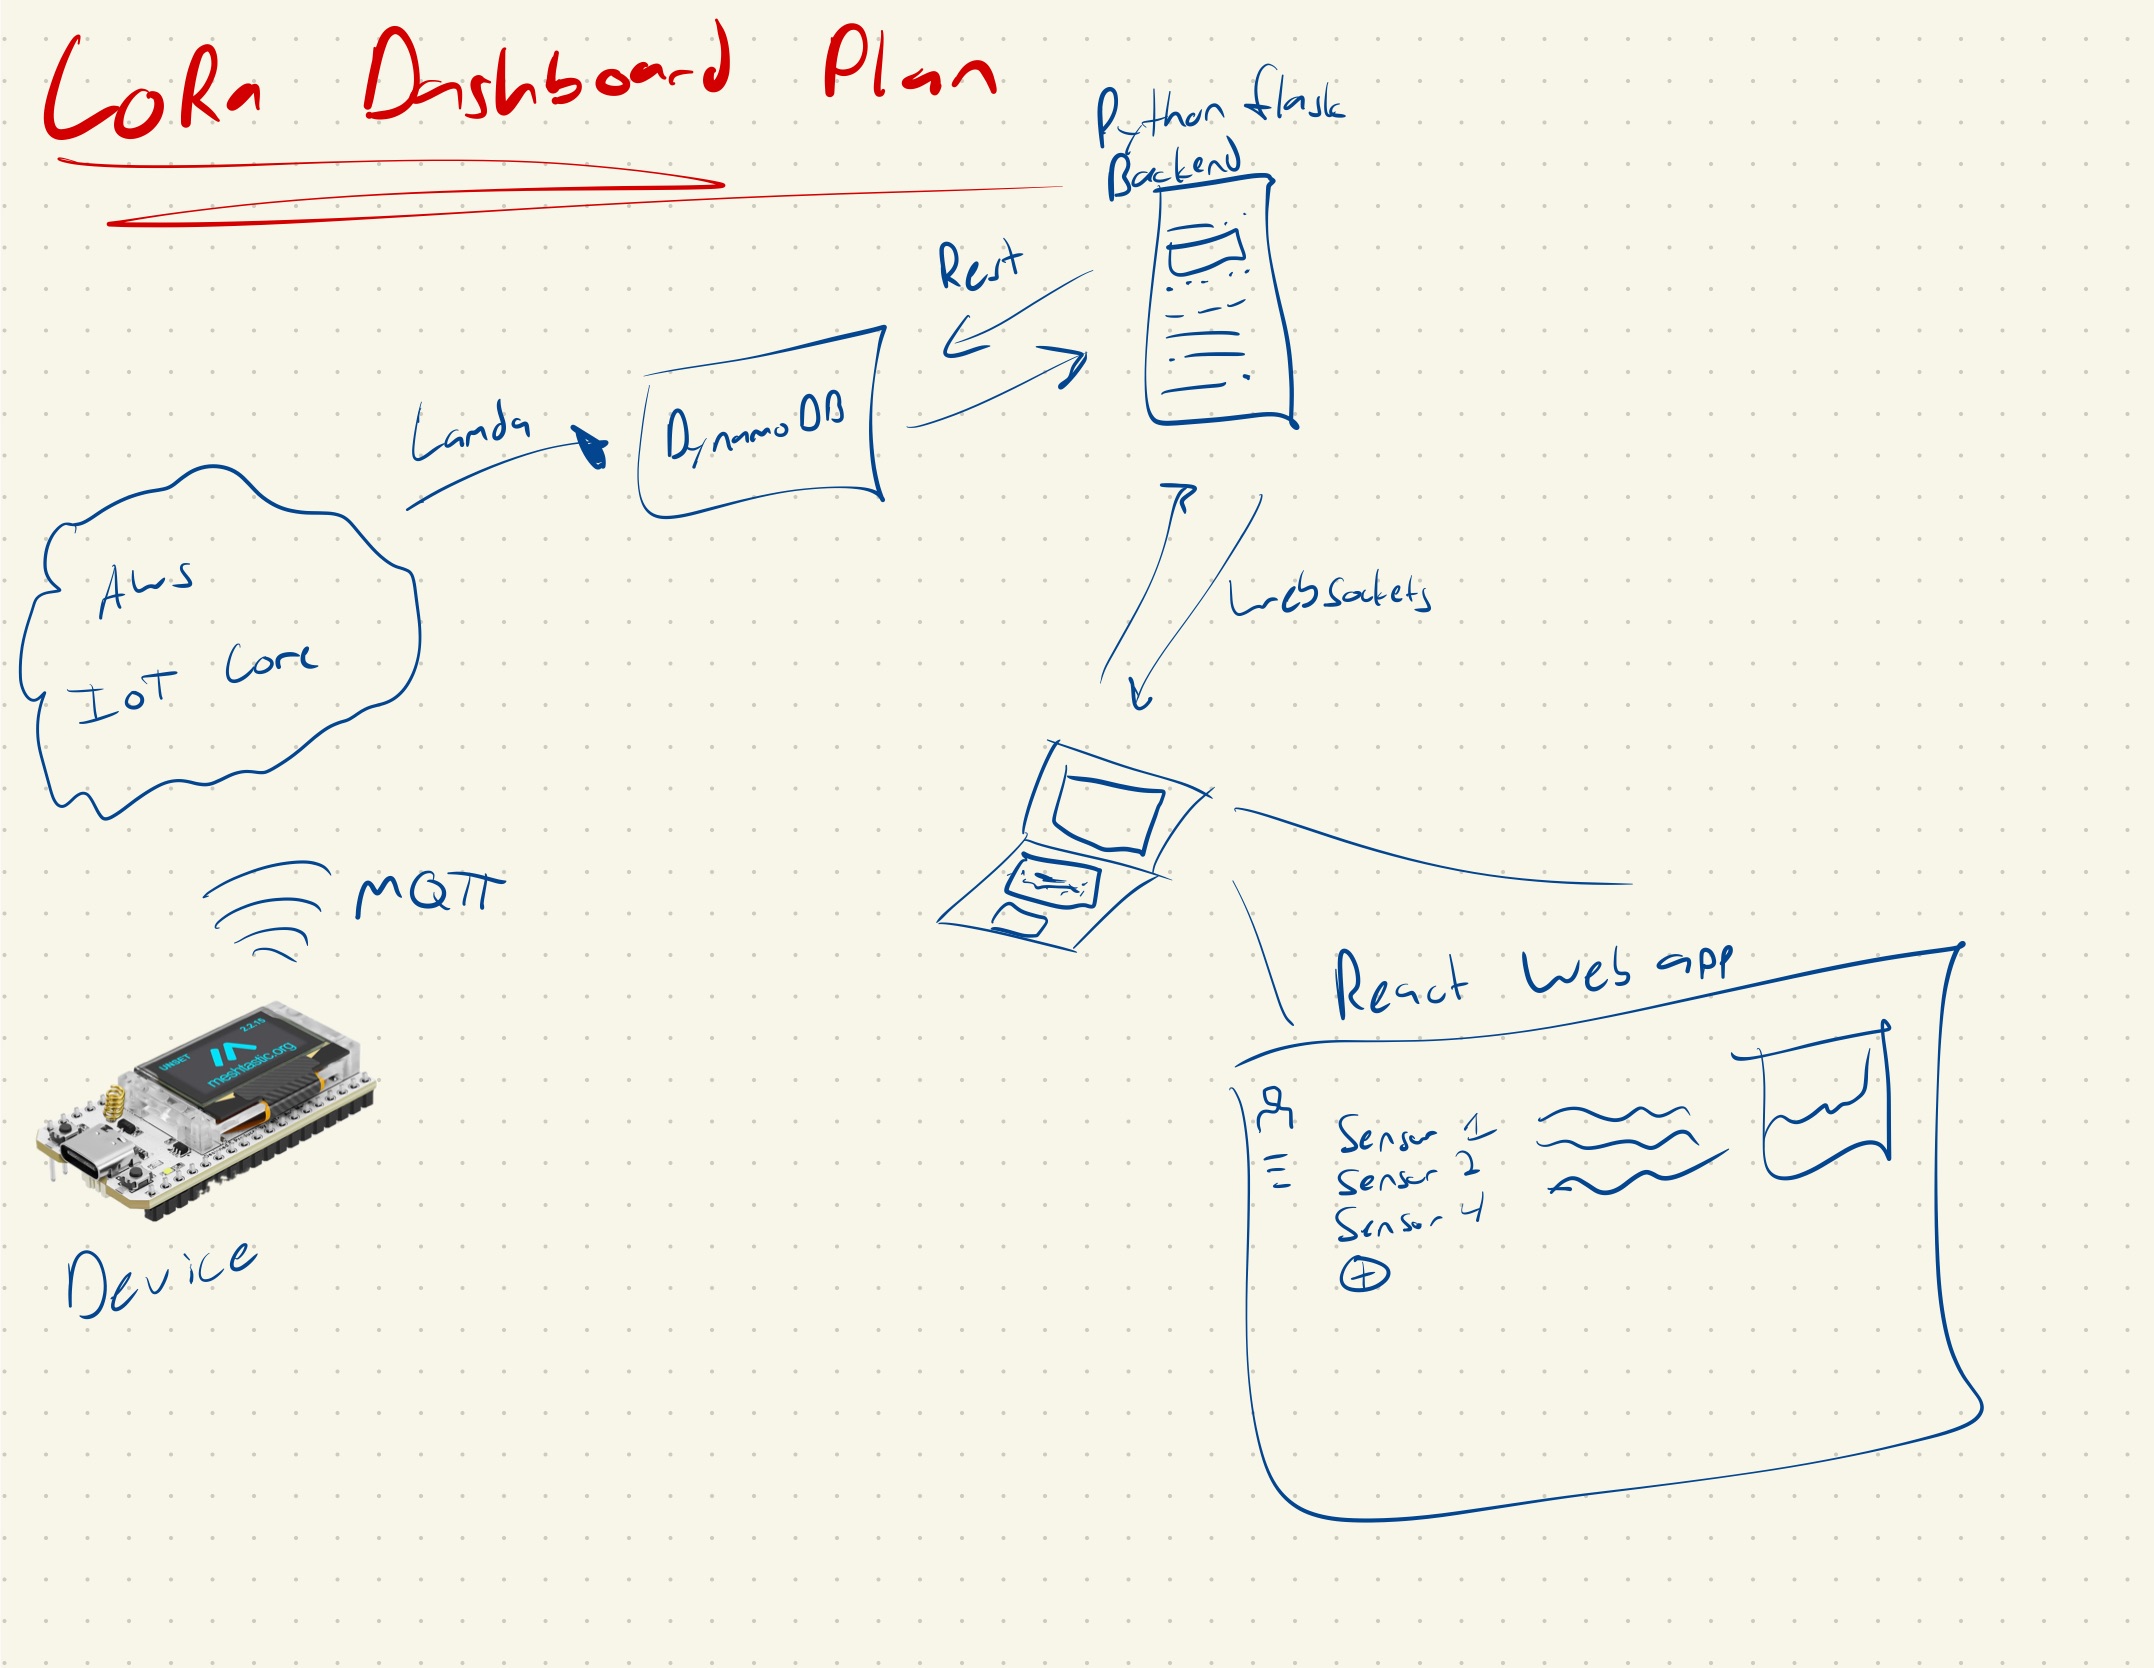 LoRa Dashboard Plan
Python flask
Backend
Rest
Lamda
DynamoDB
AWS
IoT Core
Websockets
MQTT
UNSET
2.2.15
meshtastic.org
Device
React Web app
Sensor 1
Sensor 2
Sensor 4